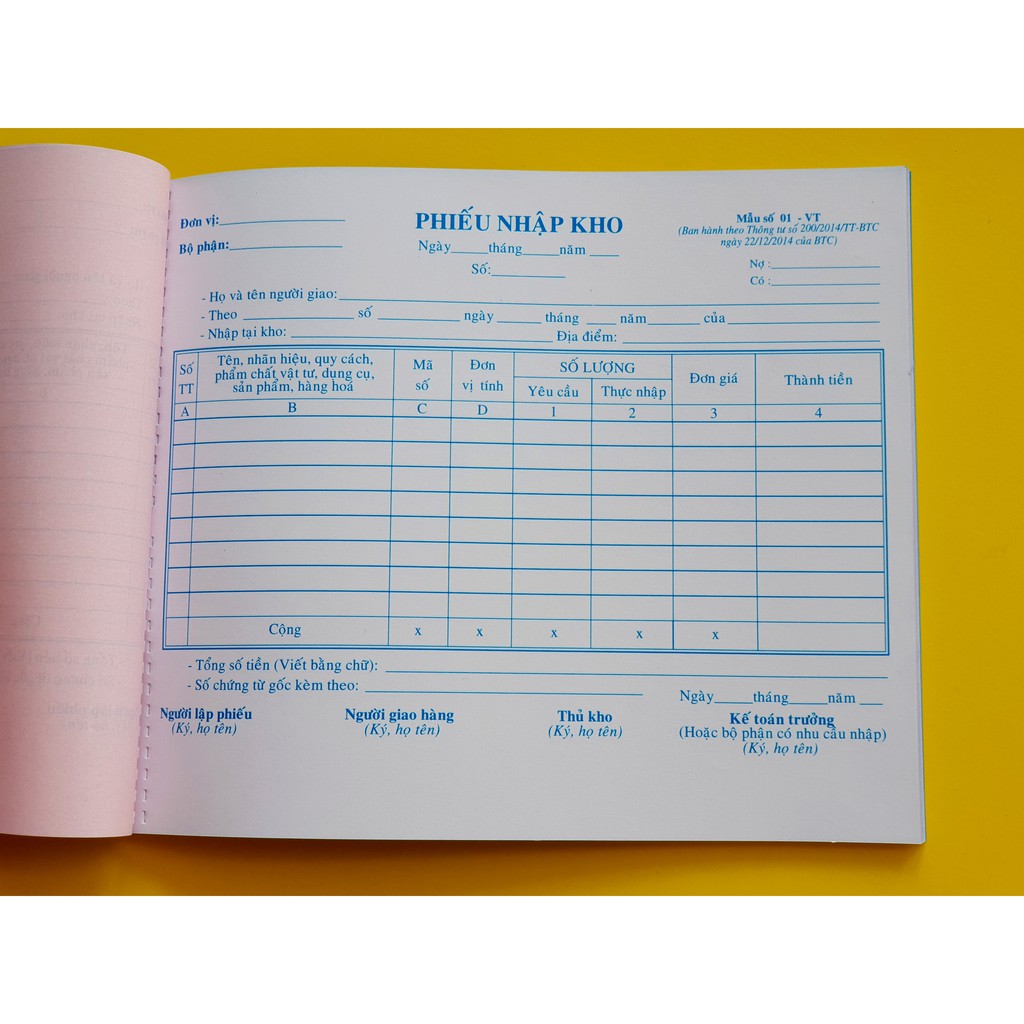 Đơn vị:
PHIẾU NHẬP KHO
Mẫu số 01 - VT
(Ban hành theo Thông tư số 200/2014/TT-BTC
ngày 22/12/2014 của BTC)
Bộ phận:
Ngày tháng năm
Số:
Nợ :
Có :
- Họ và tên người giao:
- Theo số ngày tháng năm của
- Nhập tại kho: Địa điểm:
Số
TT
Tên, nhãn hiệu, quy cách,
phẩm chất vật tư, dụng cụ,
sản phẩm, hàng hoá
Mã
số
Đơn
vị tính
SỐ LƯỢNG
Yêu cầu
Thực nhập
Đơn giá
Thành tiền
A B C D 1 2 3 4
Cộng x x x x x
- Tổng số tiền (Viết bằng chữ):
- Số chứng từ gốc kèm theo:
Ngày tháng năm
Người lập phiếu
(Ký, họ tên)
Người giao hàng
(Ký, họ tên)
Thủ kho
(Ký, họ tên)
Kế toán trưởng
(Hoặc bộ phận có nhu cầu nhập)
(Ký, họ tên)